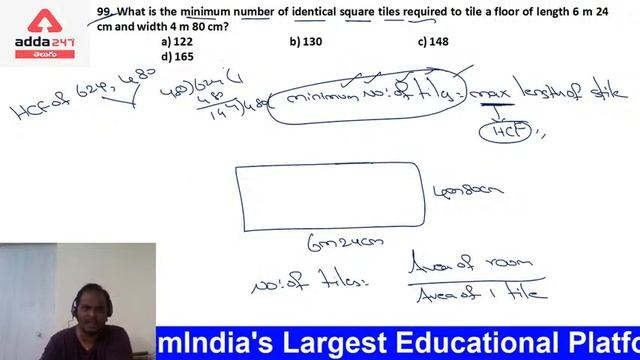 99. What is the minimum number of identical square tiles required to tile a floor of length 6 m 24
cm and width 4 m 80 cm?
a) 122 b) 130 c) 148
d) 165
adda247
తెలుగు
HCF of 624, 480
480)624(1
480
144)480(
minimum no: of tiles = max length of tile
HCF
4m 80cm
6m 24cm
no: of tiles = Area of room
Area of 1 tile
mIndia's Largest Educational Platfo